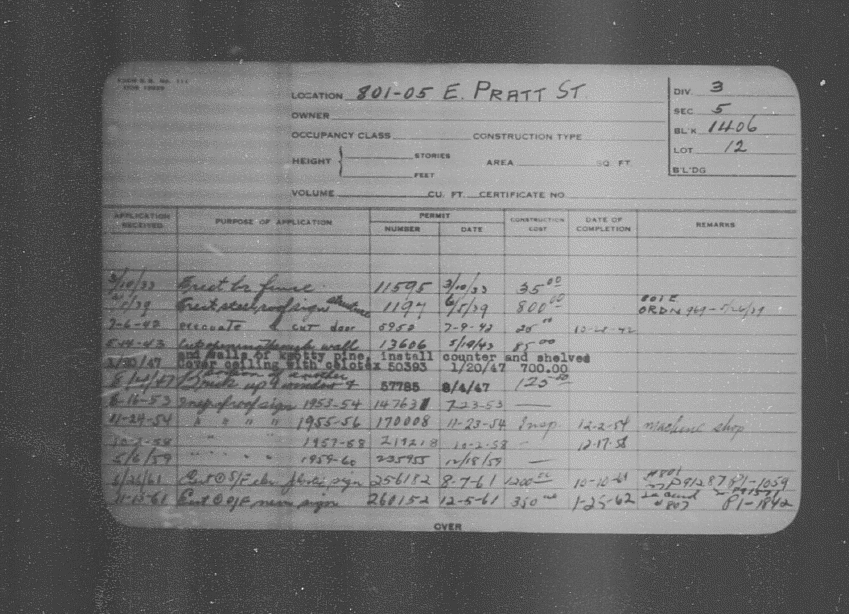 LOCATION 801-05 E. PRATT ST
DIV. 3
OWNER
SEC 5
OCCUPANCY CLASS CONSTRUCTION TYPE
BL'K 1406
HEIGHT STORIES AREA SQ. FT.
LOT 12
FEET
B'L'DG
VOLUME CU. FT. CERTIFICATE NO.
APPLICATION RECEIVED PURPOSE OF APPLICATION PERMIT NUMBER DATE CONSTRUCTION COST DATE OF COMPLETION REMARKS
3/10/33 Erect bd fence 11595 3/10/33 35.00
Erect steel roof sign structure 1197 6/5/39 800.00
ORDN 969-5/26/39
7-6-42 cut door 5952 7-9-42 10-28-42
5-14-43 wall 13606 5/19/43 85.00
and walls of knotty pine, install counter and shelves
1/20/47 Cover ceiling with celotex 50393 1/20/47 700.00
portion of another
Brick up 4 windows & 57785 8/4/47
8-16-53 Insp. of roof sign 1953-54 147631 7-23-53 —
11-24-54 " " " " 1955-56 170008 11-23-54 Insp. 12-2-54 machine shop
10-2-58 " " 1957-58 10-2-58 — 12-17-58
5/6/59 " " " " 1959-60 235955 12/18/59 —
5/26/61 Ent @ S/F elec sign 256182 8-7-61 1200.00 10-10-61 #801
81-1059
11-13-61 Ent @ D/F neon sign 260152 12-5-61 350 1-25-62 #807 81-1842
OVER